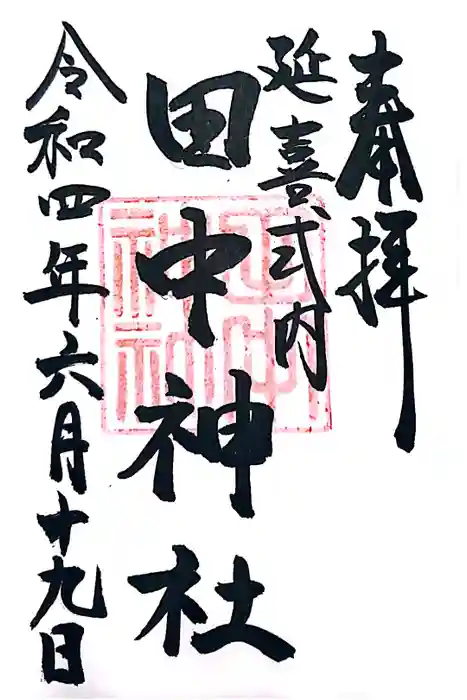 奉拝
延喜式内
田中神社
令和四年六月十九日
田中神社